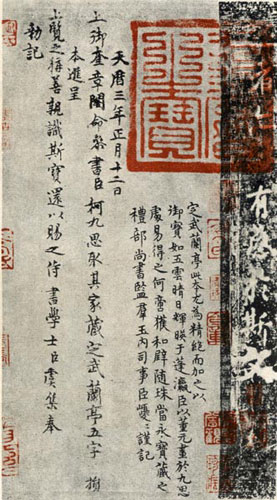 有感於斯文
定武蘭亭此本尤為精絕而加之以
御寶如五雲晴日輝映于蓬瀛臣以董元畫於九思
處易得之何啻獲和璧隨珠當永寶藏之
禮部尚書監羣玉內司事臣巎巎謹記
天曆三年正月十二日
上御奎章閣命參書臣柯九思取其家藏定武蘭亭五字損
本進呈
上覽之稱善親識斯寶還以賜之侍書學士臣虞集奉
勑記